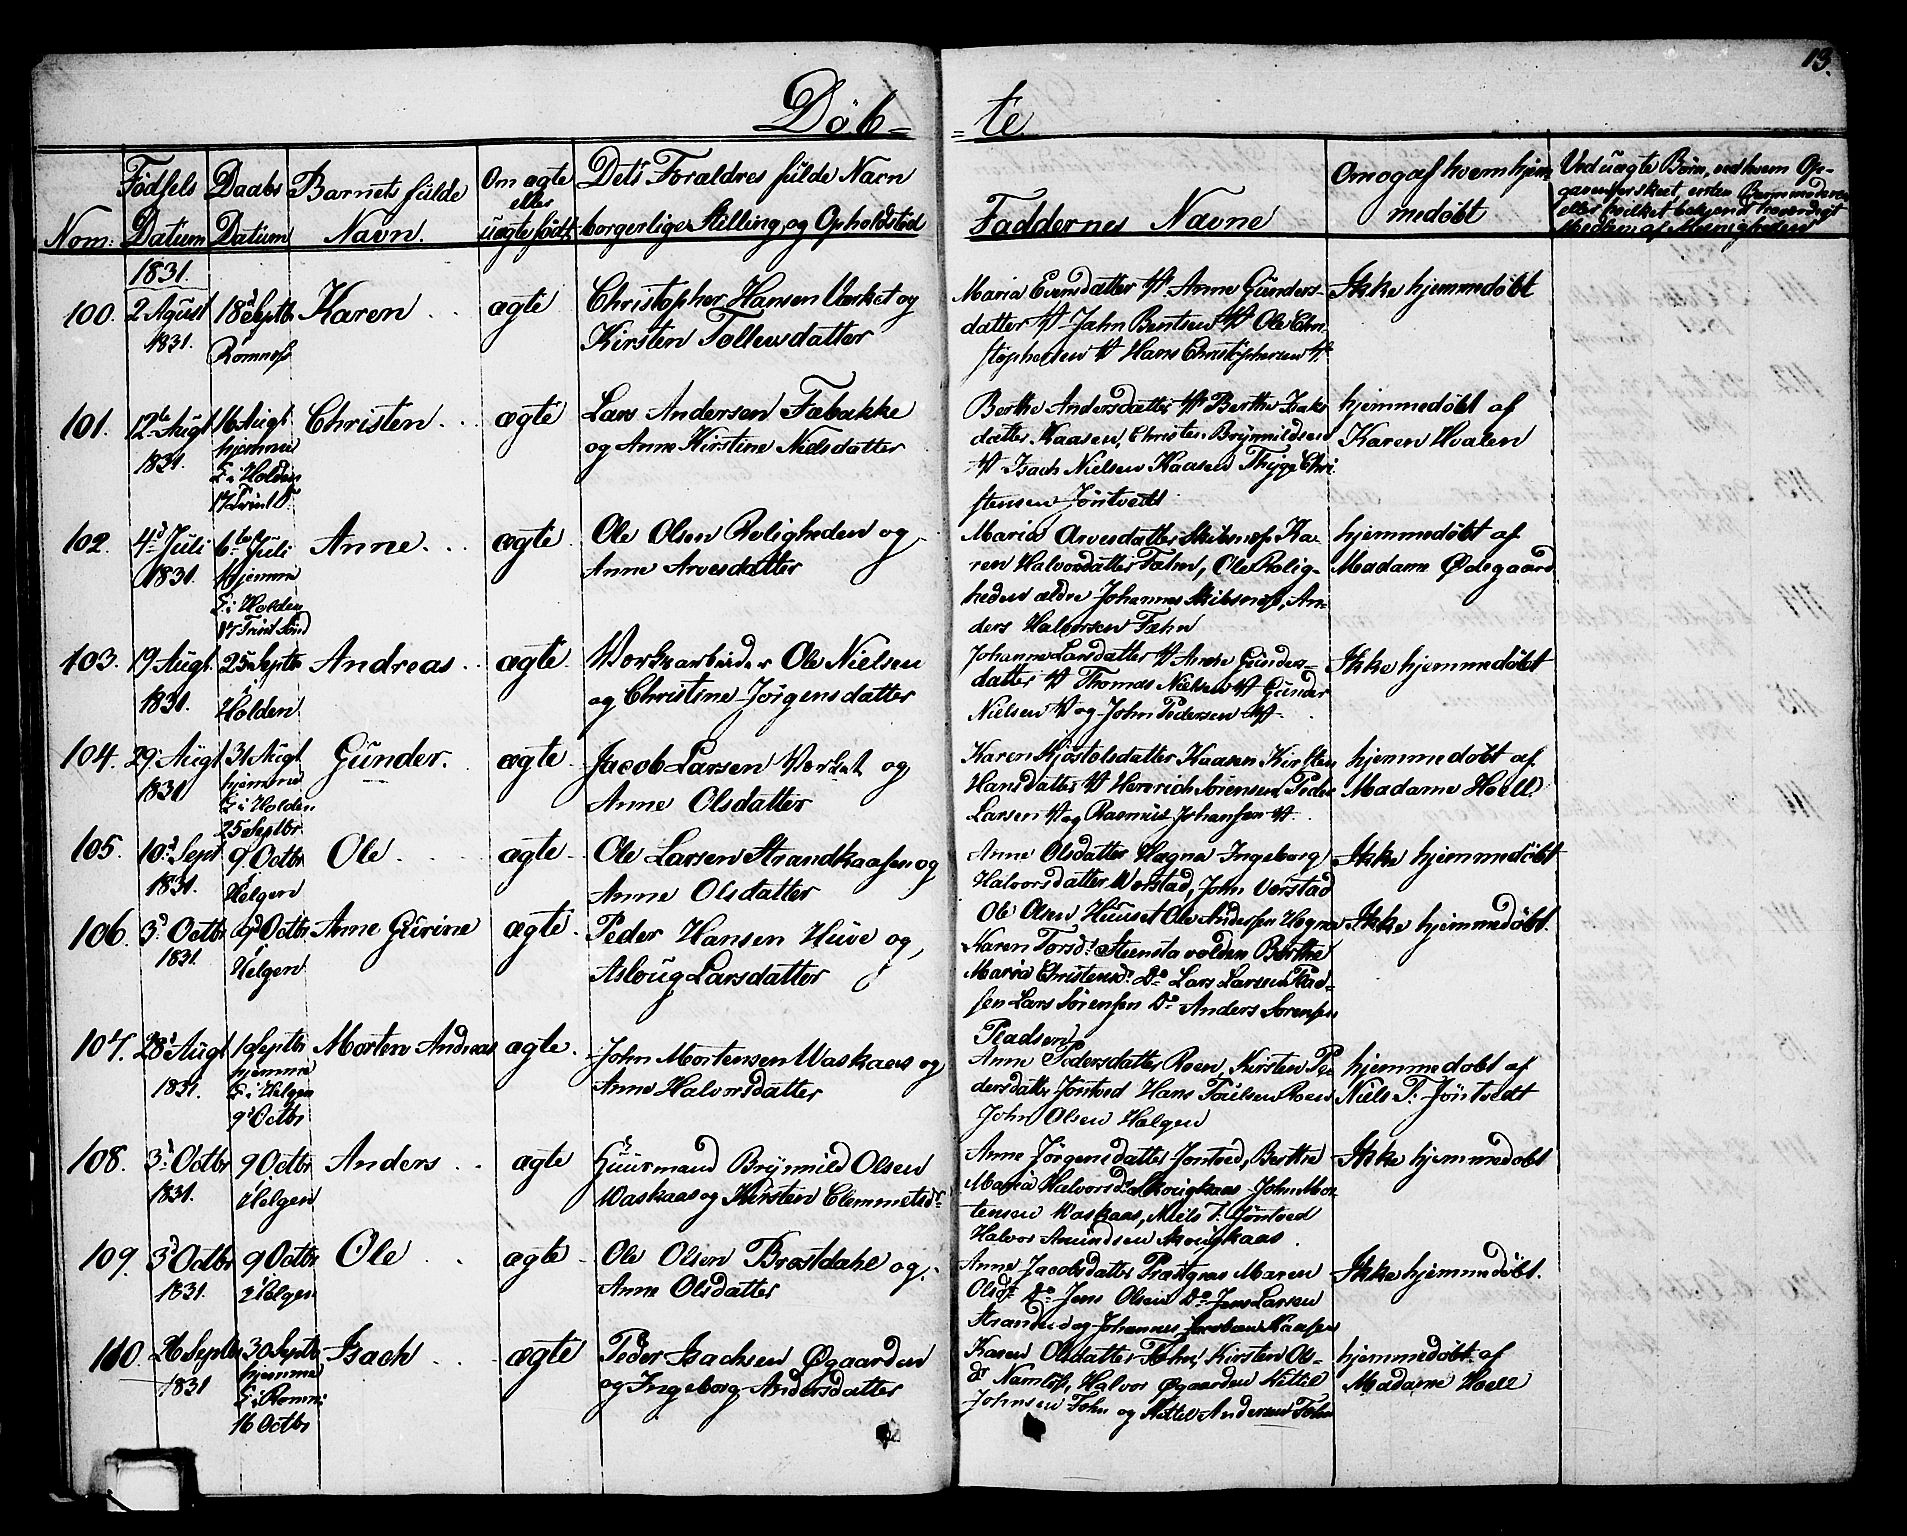 13.
Døb- -te
Nom:
Fødsels Datum
Daabs Datum
Barnets fulde Navn.
Om ægte eller uægte født
Dets Forældres fulde Navn borgerlige Stilling, og Opholdsted
Faddernes Navne
Om og af hvem hjemmedøbt
Ved uægte Børn, ved hvem
1831.
100. 2 Agust 1831.
18d Septbr Romnæs
Karen
ægte
Christopher Hansen Værket og
Kirsten Tollevsdatter
Maria Evensdatter V Anne Gunders-
datter V Jahn Bentsen V Ole Chri-
stophersen V Hans Christophersen V.
Ikke hjemmedøbt
101. 12te Augt 1831.
16 Augt
hjemme
I. i Holden
17 Trinit S.
Christen
ægte
Lars Andersen Fæbakke
og Anne Kirstine Nielsdatter
Berthe Andersdatter V Berthe Isaks
datter Kaasen, Christen Brynnildsen
V Isach Nielsen Kaasen Thygge Chri
stensen Jøntvedt
hjemmedøbt af
Karen Hvalen
102. 4d Juli 1831.
6te Juli
hjemme
I. i Holden
17 Trint Sønd
Anne
ægte
Ole Olsen Roligheden og
Anne Arvesdatter
Maria Arvesdatter Skibsnæs, Ka-
ren Halvorsdatter Fæhn, Ole Rolig-
heden ældre Johannes Skibsnæs, An-
ders Halvorsen Fæhn
hjemmedøbt af
Madame Ødegaard
103. 19 Augt 1831.
25 Septbr
i Holden
Andreas
ægte
Verksarbeider Ole Nielsen
og Christine Jørgensdatter
Johanne Larsdatter V Anne Gunders-
datter V Thomas Nielsen V Gunder
Nielsen V og John Pedersen V.
Ikke hjemmedøbt
104. 29 Augt 1831
31 Augt
hjemme
I. i Holden
25 Septbr
Gunder.
ægte
Jacob Larsen Verket og
Anne Olsdatter
Karen Kjøstolsdatter Kaasen Kirsten
Hansdatter V Henrich Sørensen, Peder
Larsen V og Rasmus Johansen V.
hjemmedøbt af
Madame Hoell
105. 10d Sept 1831.
9 Octbr
i Helgen
Ole
ægte
Ole Larsen Strandkaasen og
Anne Olsdatter
Anne Olsdatter Hægna Ingeborg
Halvorsdatter Verstad, John Verstad
Ole Olsen Huuset Ole Andersen Hegna
Ikke hjemmedøbt
106. 3d Octbr 1831.
9 Octbr
i Helgen
Anne Gurine
ægte
Peder Hansen Huve og
Asloug Larsdatter
Karen Torsdr Steenstavolden Berthe
Maria Christensdr Do Lars Larsen Plad-
sen Lars Sørensen Do Anders Sørensen
Pladsen
Ikke hjemmedøbt.
107. 28d Augt 1831.
1 Septbr
hjemme
I. i Helgen
9d Octbr
Morten Andreas
ægte
John Mortensen Waskaas og
Anne Halvorsdatter
Anne Pedersdatter Roen, Kirsten Pe
dersdatter Jøntved Hans Poulsen Roen
John Olsen Halgen
hjemmedøbt af
Niels T. Jøntvedt
108. 3d Octbr 1831.
9 Octbr
i Helgen
Anders
ægte
Huusmand Brynnild Olsen
Waskaas og Kirsten Clemmetsdr
Anne Jørgensdatter Jøntved, Berthe
Maria Halvorsdr Skougkaas John Mor
tensen Waskaas, Niels T. Jøntved
Halvor Amundsen Skougkaas.
Ikke hjemmedøbt
109. 3d Octbr 1831.
9 Octbr
i Helgen
Ole
ægte
Ole Olsen Brøstdahl og
Anne Olsdatter
Anne Jacobsdatter Præstgræs Maren
Olsdr Do Jens Olsen Do Jens Larsen
Stranden og Johannes Jacobsen Kaasen
Ikke hjemmedøbt.
110. 26 Septbr 1831
30 Septbr
hjemme
I. i Romn:
16 Octbr
Isach
ægte
Peder Isachsen Øgaarden
og Ingeborg Andersdatter
Karen Olsdatter Fæhn, Kirsten Ols-
dr Namløs, Halvor Øgaarden Kittil
Johnsen Fæhn og Kittil Andersen Fæhn
hjemmedøbt af
Madame Hoell